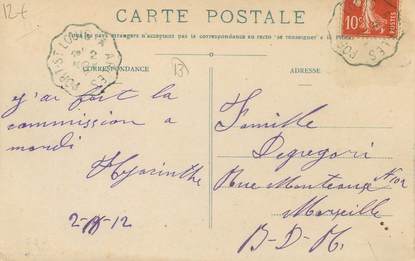 12f
CARTE POSTALE
Tous les pays étrangers n'acceptent pas la correspondance au recto (se renseigner à la Poste)
CORRESPONDANCE
ADRESSE
PORT-ST-LOUIS A ARLES
10c
j'ai fait la
commission a
mardi
Hyacinthe
2-12
Famille
Degregori
Rue Monteaux
Marseille
B-D-R.